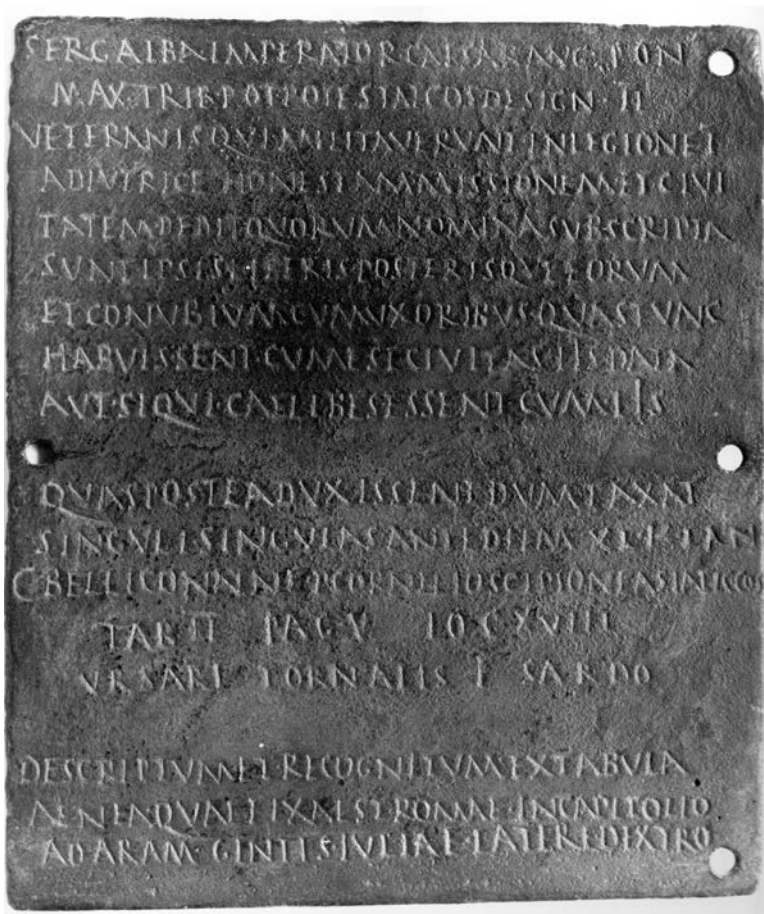 SER GALBA IMPERATOR CAESAR AVG PON
MAX·TRIB POT POTESTAT COS DESIGN·II
VETERANIS QVI MILITAVERVNT IN LEGIONE I
ADIVTRICE HONESTAM MISSIONEM ET CIVI
TATEM DEDIT QVORVM NOMINA SVBSCRIPTA
SVNT IPSIS LIBERIS POSTERISQVE EORVM
ET CONVBIVM CVM VXORIBVS·QVAS TVNC
HABVISSENT·CVM EST CIVITAS IIS DATA
AVT·SI QVI·CAELIBES ESSENT·CVM IIS
QVAS POSTEA DVXISSENT DVMTAXAT
SINGVLI SINGVLAS ANTE DIEM XI·K·IAN
C BELLICO P CORNELIO SCIPIONE ASIATICO COS
TAB II PAG V LOC XVIII
VRSARI TORNALIS F SARDO
DESCRIPTVM ET RECOGNITVM EX TABVLA
AENEA QVAE FIXA EST ROMAE·IN CAPITOLIO
AD ARAM·GENTIS IVLIAE·LATERE DEXTRO